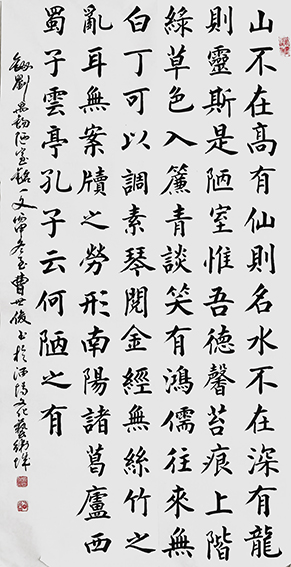 山不在高有仙則名水不在深有龍
則靈斯是陋室惟吾德馨苔痕上階
綠草色入簾青談笑有鴻儒往來無
白丁可以調素琴閱金經無絲竹之
亂耳無案牘之勞形南陽諸葛廬西
蜀子雲亭孔子云何陋之有
錄劉禹錫陋室銘一文丙申冬至曹世俊書於陽文化藝術城